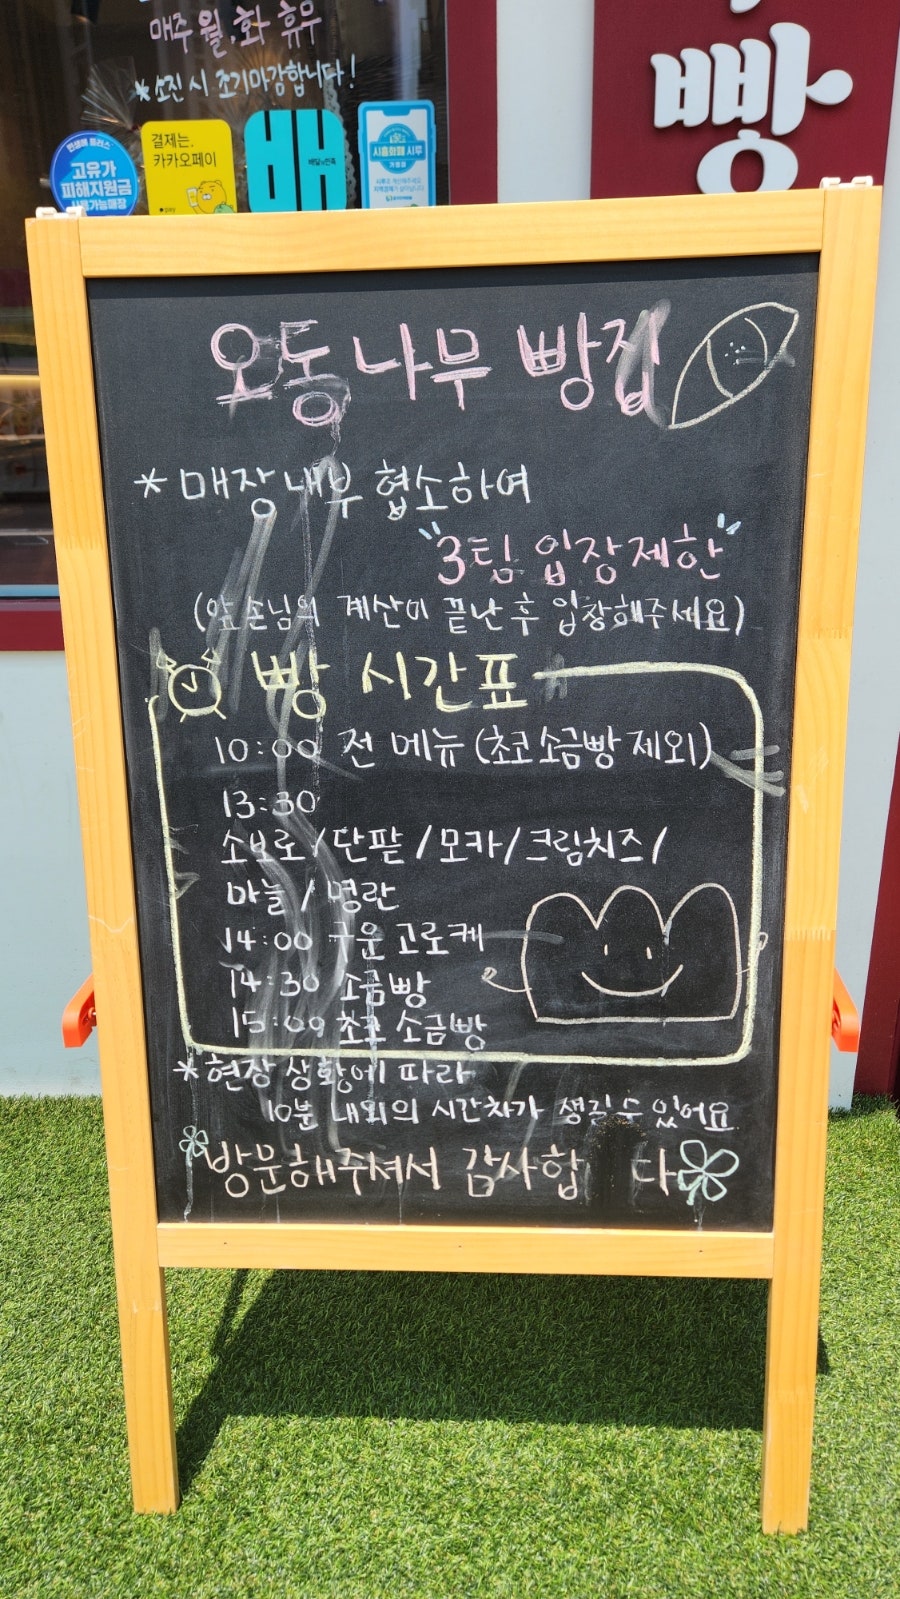 매주 월,화 휴무
*소진 시 조기마감합니다!
민생회복 플러스
고유가
피해지원금
사용가능매장
결제는.
카카오페이
배
배달의민족
시흥화폐 시루
가맹점
빵
오동나무 빵집
* 매장내부 협소하여
"3팀 입장제한"
(앞 손님의 계산이 끝난 후 입장해주세요)
빵 시간표
10:00 전 메뉴 (초코소금빵 제외)
13:30
소보로/단팥/모카/크림치즈/
마늘/명란
14:00 구운 고로케
14:30 소금빵
15:00 초코 소금빵
*현장 상황에 따라
10분 내외의 시간차가 생길 수 있어요
방문해주셔서 감사합 다